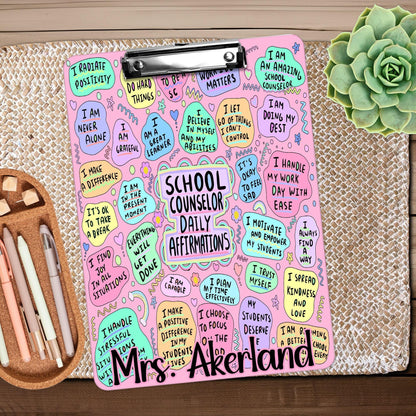 I RADIATE
POSITIVITY
DO HARD
THINGS
TO BE M
SC
WORK
MATTERS
I AM
AN AMAZING
SCHOOL
COUNSELOR
I AM
NEVER
ALONE
I AM
GRATEFUL
I AM
A GREAT
LEARNER
I
BELIEVE
IN MYSELF
AND MY
ABILITIES
I LET
GO OF THINGS
I CAN'T
CONTROL
I AM
DOING MY
BEST
I MAKE
A DIFFERENCE
I AM
IN THE
PRESENT
MOMENT
SCHOOL
COUNSELOR
DAILY
AFFIRMATIONS
IT'S
OKAY
TO FEEL
SAD
I HANDLE
MY WORK
DAY WITH
EASE
IT'S OK
TO TAKE
A BREAK
EVERYTHING
WILL
GET
DONE
I MOTIVATE
AND EMPOWER
MY STUDENTS
I ALWAYS
FIND
A
WAY
I FIND
JOY
IN ALL
SITUATIONS
I AM
CAPABLE
I PLAN
MY TIME
EFFECTIVELY
I TRUST
MYSELF
I SPREAD
KINDNESS
AND
LOVE
I HANDLE
STRESSFUL
SITUATIONS
I MAKE
A POSITIVE
DIFFERENCE
IN MY
STUDENTS
I CHOOSE
TO FOCUS
ON THE
MY
STUDENTS
DESERVE
I AM
A BETTER
SCHOOL
EVERY
Mrs. Akerland